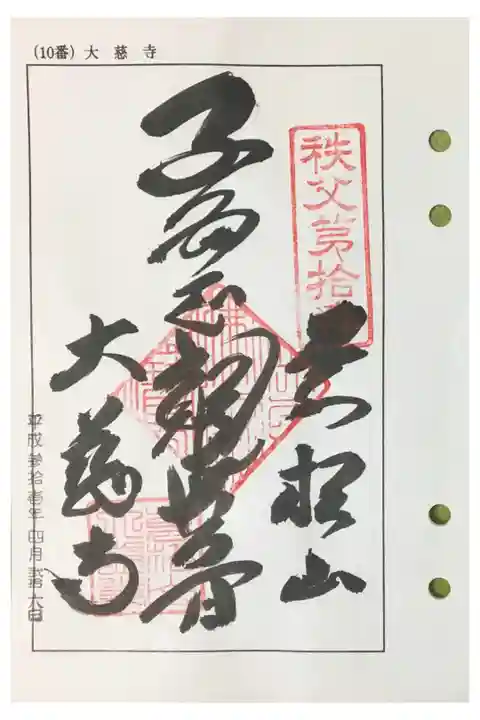 (10番) 大慈寺
秩父第拾番
万松山
子育正観世音
大慈寺
平成参拾壱年四月弐拾六日